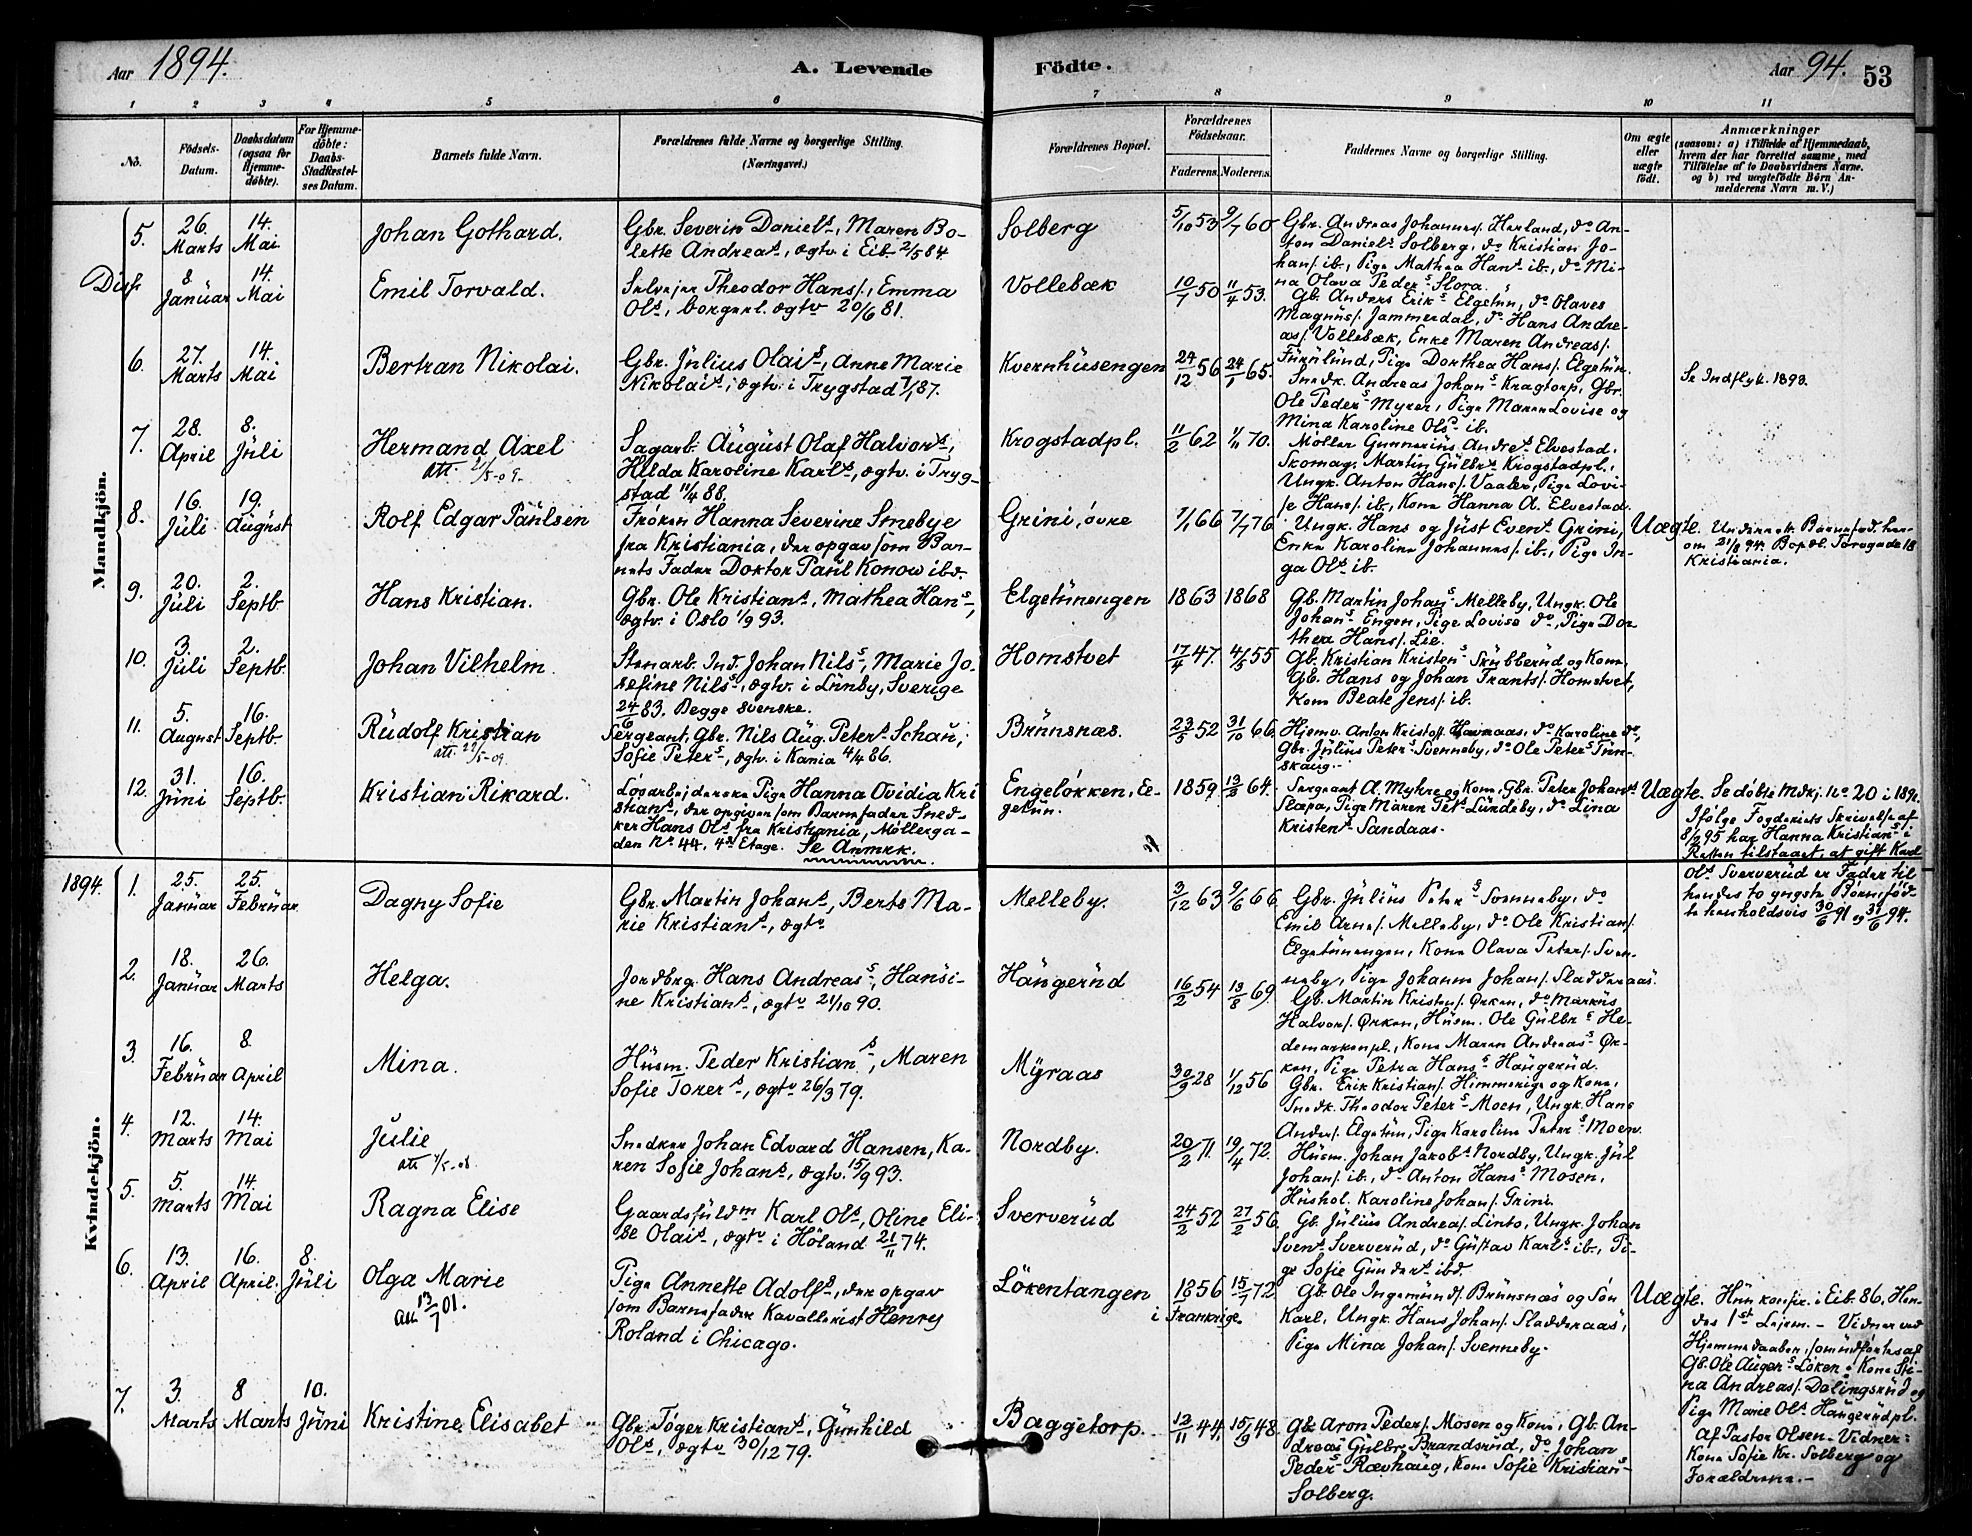 Aar 1894.
A. Levende
Födte.
Aar 94. 53
1 2 3 4 5 6 7 8 9 10 11
No.
Födsels-
Datum.
Daabsdatum
(ogsaa for
Hjemme-
döbte).
For Hjemme-
döbte:
Daabs-
Stadfæstel-
ses Datum.
Barnets fulde Navn.
Forældrenes fulde Navne og borgerlige Stilling.
(Næringsvei.)
Forældrenes Bopæl.
Forældrenes
Födselsaar.
Faderens. Moderens.
Faddernes Navne og borgerlige Stilling.
Om ægte
eller
uægte
født.
Anmærkninger
(saasom: a) i Tilfælde af Hjemmedaab,
hvem der har forrettet samme, med
Tilföielse af to Daabsvidners Navne,
og b) ved uægtefödte Börn An-
melderens Navn m. V.)
Mandkjön.
5. 26. Marts 14. Mai
Johan Gothard.
Gbr. Severin Daniels, Maren Bo-
lette Andreas, ægtv. i Eib. 2/5 84.
Solberg
5/10 53 9/7 60
Gbr. Andreas Johannes. Herland, do An-
ton Daniels Solberg, do Kristian Jo-
hans. ib., Pige Mathea Hans ib., do Mi-
na Olava Peders Slora.
Diss. 8 Januar 14. Mai
Emil Torvald.
Selveier Theodor Hans., Emma
Ols, borgerl. ægtv 20/6 81.
Vollebæk
10/7 50 11/4 53.
Gb. Anders Eriks Elgetun, do Olaves
Magnus. Jammerdal, do Hans Andre-
as. Vollebæk, Enke Maren Andreas.
Furulund, Pige Dorthea Hans. Elgetun.
6. 27. Marts 14. Mai
Bertran Nikolai.
Gbr. Julius Olais, Anne Marie
Nikolais, ægtv. i Trygstad 7/1 87.
Kvernhusengen
24/12 56 24/1 65.
Snedk. Andreas Johans Kragtorp, Gbr.
Ole Peders Myrer, Pige Maren Lovise og
Mina Karoline Ols ib.
Se Indflyt. 1893.
7. 28. April 8. Juli
Hermand Axel
att. 21/5-09.
Sagarb. August Olaf Halvors,
Hilda Karoline Karls, ægtv. i Tryg-
stad 11/4 88.
Krogstadpl.
11/2 62 1/11 70.
Möller Gunnerius Andres Elvestad.
Skomag. Martin Gulbrs Krogstadpl.,
Ungk. Anton Hans. Vaaler, Pige Lovi-
se Hans. ib., Kone Hanna A. Elvestad.
8. 16. Juli 19. August
Rolf Edgar Paulsen
Fröken Hanna Severine Smebye
fra Kristiania, der opgav som Bar-
nets Fader Doktor Paul Konow ibd.
Grini, övre
1/1 66 7/7 76
Ungk. Hans og Just Evens Grini,
Enke Karoline Johannes. ib., Pige In-
ga Ols ib.
Uægte. Underrett. Barnefad. her-
om 21/8 94. Bopæl. Torvgade 18
Kristiania.
9. 20. Juli 2. Septb.
Hans Kristian.
Gbr. Ole Kristians, Mathea Hans,
ægtv. i Oslo 1/9 93.
Elgetunengen
1863 1868
Gb. Martin Johans Melleby, Ungk. Ole
Johans Engen, Pige Lovise do, Pige Dor-
thea Hans. Lie.
10. 3. Juli 2. Septb.
Johan Vilhelm
Stenarb. Ind. Johan Nils, Marie Jo-
sefine Nils, ægtv. i Lunby, Sverige
24/6 83. Begge svenske.
Homstvet
17/4 47. 4/5 55
Gb. Kristian Kristens Skubberud og Kone,
Gb. Hans og Johan Frants. Homstvet,
Kone Beate Jens. ib.
11. 5. August 16. Septb.
Rudolf Kristian
att. 29/5-09.
Sergeant, Gbr. Nils Aug. Peters Schau,
Sofie Peters, ægtv. i Kania 4/4 86.
Brunsnæs.
23/5 52 31/10 66
Hjemv. Anton Kristoff. Havnaas, do Karoline do,
Gbr. Julius Peters Svenneby, do Ole Peters Tun-
skaug.
12. 31. Juni 16. Septb.
Kristian Rikard.
Lösarbejderske Pige Hanna Ovidia Kri
stians, der opgiver som Barnefader Sned-
ker Hans Ols fra Kristiania, Möllerga-
den No 44, 4de Etage. Se Anmærk.
Engelökken, El-
getun.
1859 13/8 64.
Sergeant A. Myhre og Kone, Gbr. Peter Johans
Slæpa, Pige Maren Pets Lundeby, do Lina
Kristens Sandaas.
Uægte. Se döbte Mdkj. No 20 i 1891.
Ifölge Fogderiets Skrivelse af
8/2 95 har Hanna Kristians i
Retten tilstaaet, at gift Karl
Ols Sververud er Fader til
hendes to yngste Börn föd-
te henholdsvis 30/6 91 og 31/6 94.
Kvindekjön.
1894. 1. 25. Januar 25. Februar
Dagny Sofie
Gbr. Martin Johans, Berte Ma-
rie Kristians, ægtv
Melleby.
3/12 63 9/6 66
Gbr. Julius Peters Svenneby, do
Emil Arnes. Melleby, do Ole Kristian.
Elgetunengen, Kone Olava Peters. Sven-
neby, Pige Johanne Johans. Sladderaas.
2. 18. Januar 26. Marts
Helga.
Jordbrg. Hans Andreas, Hansi-
ne Kristians, ægtv 21/10 90.
Haugerud
16/2 54 13/8 69.
Gb. Martin Kristens. Örken, do Markus
Halvors. Örken, Husm. Ole Gulbrs He-
demarkenpl., Kone Maren Andreas Ör-
ken, Pige Petra Hans Haugerud.
3. 16. Februar 8. April
Mina.
Husm. Peder Kristians, Maren
Sofie Torers, ægtv 26/3 79.
Myraas
30/9 28 1/12 56
Gbr. Erik Kristians. Himmerige og Kone,
Snedk. Theodor Peters Moen, Ungk. Hans
Anders. Elgetun, Pige Karoline Peters Moen.
4. 12. Marts 14. Mai
Julie
att. 1/5-08.
Snedker Johan Edvard Hansen, Ka-
ren Sofie Johans, ægtv. 15/9 93.
Nordby.
20/2 71. 19/4 72.
Husm. Johan Jakobs Nordby, Ungk. Jul
Johans. ib., do Anton Hans Mosen,
Hushol. Karoline Johans. Grini.
5. 5. Marts 14. Mai
Ragna Elise
Gaardsfuldm Karl Ols, Oline Eli-
se Olais, ægtv i Höland 21/11 74.
Sververud
24/2 52 27/2 56
Gb. Julius Andreas. Linto, Ungk. Johan
Svens Sververud, do Gustav Karls ib., Pi-
ge Sofie Gunders ibd.
6. 13. April 16. April. 8. Juli
Olga Marie
att 13/7 01.
Pige Annette Adolfs, der opgav
som Barnefader Kavallerist Henry
Roland i Chicago.
Lökentangen
1856 15/7 72
i Frankrige.
Gb. Ole Ingemunds Brunsnæs og Sön
Karl, Ungk. Hans Johans. Sladderaas,
Pige Mina Johans. Svenneby.
Uægte. Hun konfir. i Eib. 86. Hen-
des 1ste Lejerm. - Vidner ved
Hjemmedaaben, som udförtes af
Gb. Ole Augens Löken: Kone Sti-
na Andreas. Dalingsrud og
Pige Marie Ols Haugerudpl.
7. 3. Marts 8 Marts 10. Juni
Kristine Elisabet
Gbr. Töger Kristians, Gunhild
Ols, ægtv 30/12 79.
Baggetorp.
12/11 44 15/9 48
Gb. Aron Peders. Mosen og Kone, Gb. An-
dreas Gulbrs Brandsrud, do Johan
Peders Rævhaug, Kone Sofie Kristians
Solberg.
Af Pastor Olsen. Vidner:
Kone Sofie Kr. Solberg og
Forældrene.-